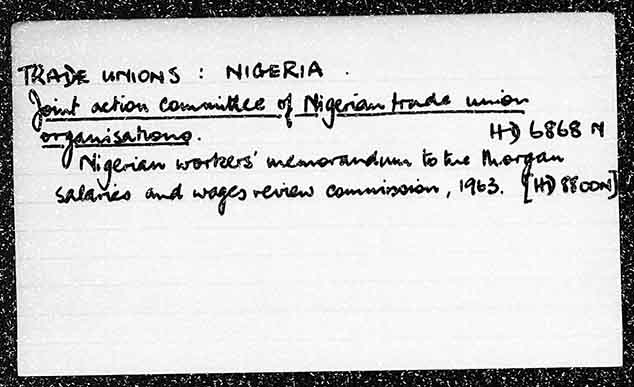 TRADE UNIONS : NIGERIA.
Joint action committee of Nigerian trade union
organisations. HD 6868 N
Nigerian workers' memorandum to the Morgan
salaries and wages review commission, 1963. [HD 8800N]